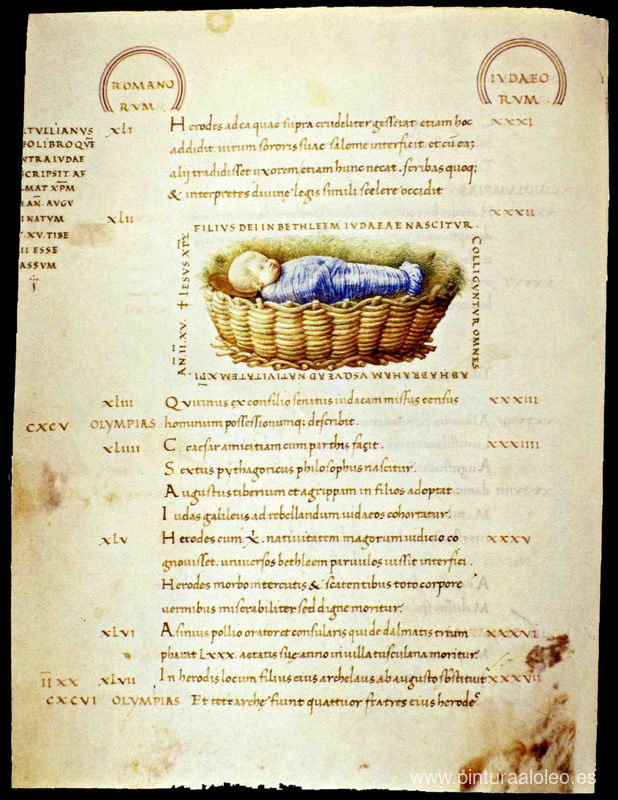 ROMANO
RVM
IVDAEO
RVM
TVLLIANVS
BOLIBRO QVE
NTRA IVDAE
SCRIPSIT AF
MAT XPM
AN AVGV
NATVM
XV TIBE
II ESSE
ASSVM
XLI Herodes ad ea quae supra crudeliter gesserat, etiam hoc XXXI
addidit. virum sororis suae salome interficit. et cu ea
alii tradidisset uxorem etiam hunc necat. scribas quoq;
& interpretes divine legis simili scelere occidit
XLII XXXII
FILIVS DEI IN BETHLEEM IVDAEAE NASCITVR.
AN. II. XV. † IESVS XPS
COLLIGVNTVR OMNES
AB HABRAHAM VSQVE AD NATIVITATEM XPI
XLIII Quirinus ex consilio senatus iudaeam missus census XXXIII
CXCV OLYMPIAS hominum possessionumq; describit.
XLIIII C. caesar amicitiam cum parthis facit. XXXIIII
Sextus pythagoricus philosophus nascitur.
Augustus tiberium et agrippam in filios adoptat
Iudas galileus ad rebellandum iudaeos cohortatur.
XLV Herodes cum χ̄. nativitatem magorum iudicio co XXXV
gnovisset. universos bethleem parvulos iussit interfici.
Herodes morbo intercutis & scatentibus toto corpore
vermibus miserabiliter sed digne moritur.
XLVI Asinius pollio orator et consularis qui de dalmatis trium XXXVI
pharat LXXX. aetatis suę anno in villa tusculana moritur.
IIXX XLVII In herodis locum filius eius archelaus ab augusto sbstituit XXXVII
CXCVI OLYMPIAS Et tetrarchę fiunt quattuor fratres eius herode
www.pinturaaloleo.es